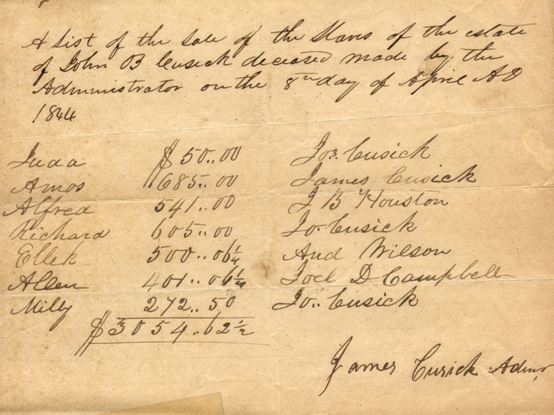 A List of the Sale of the Slaves of the estate
of John B Cusick deceased made by the
Administrator on the 8th day of April AD
1844
Juda $50..00 Jos. Cusick
Amos 685..00 James Cusick
Alfred 541..00 J B Houston
Richard 605..00 Jo. Cusick
Ellek 500..06¼ And Wilson
Allen 401..06¼ Joel D Campbell
Milly 272..50 Jo.. Cusick
$3054..62½
James Cusick Admr